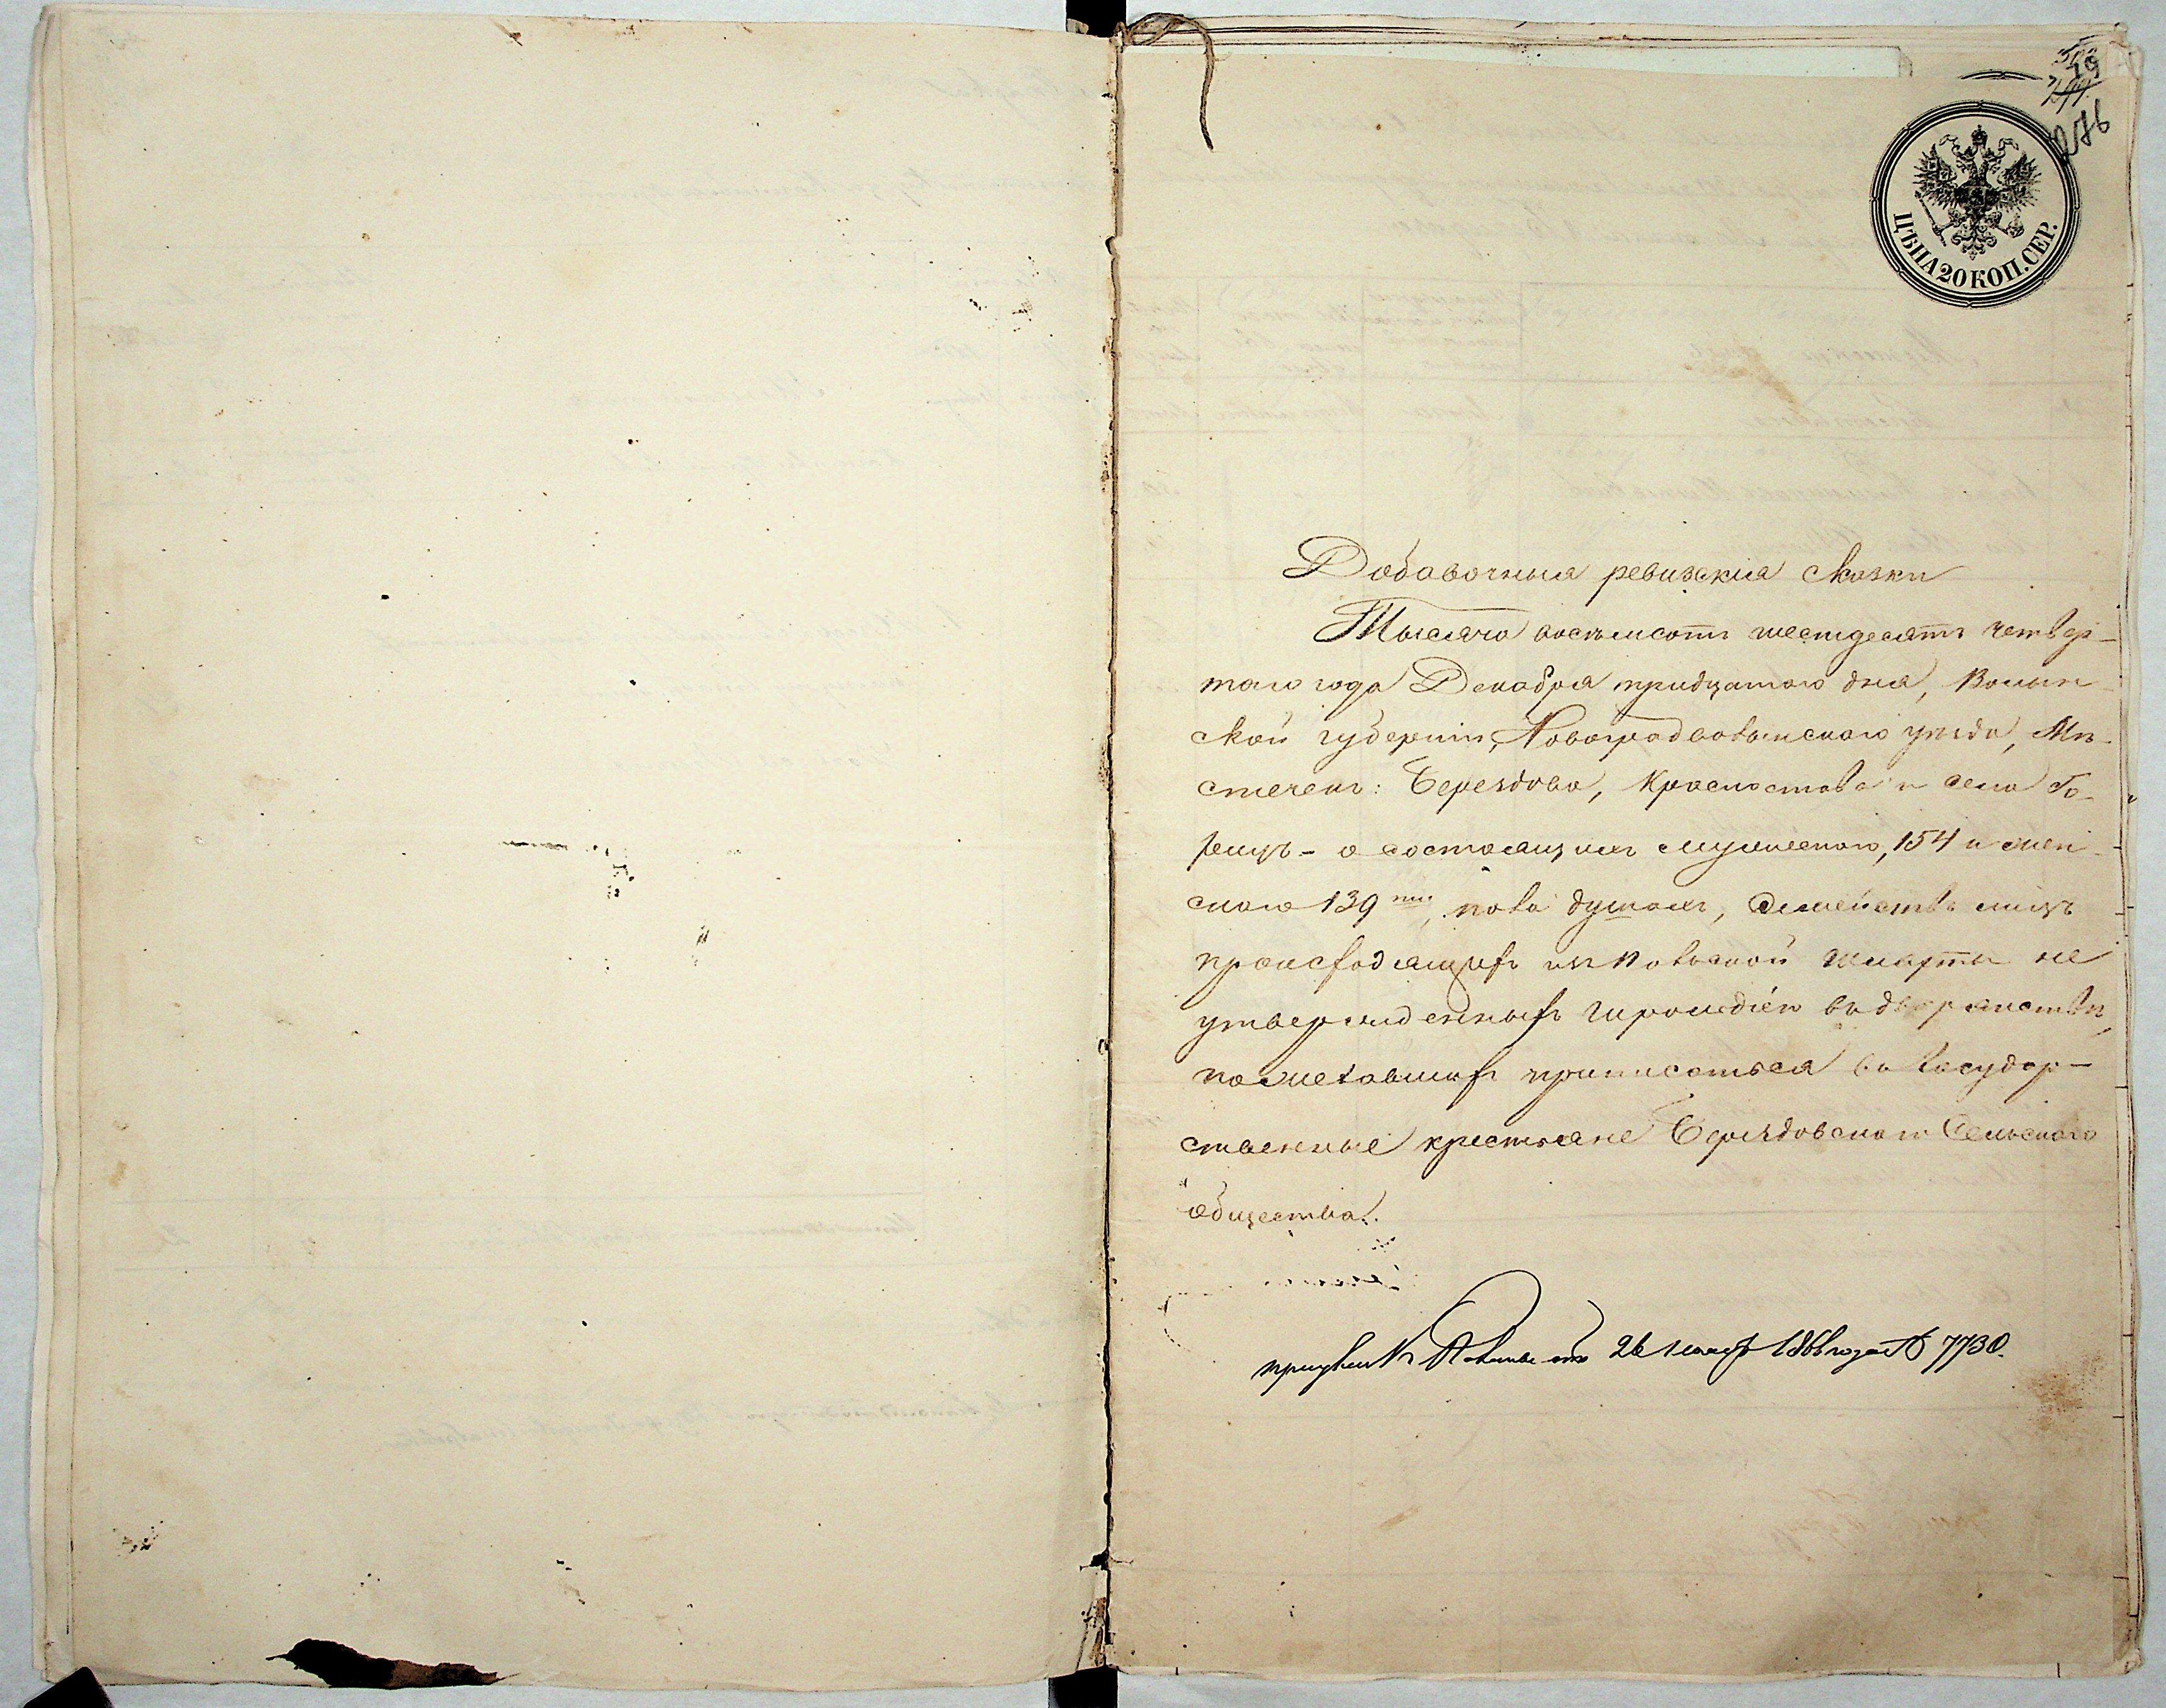 276
ЦѢНА 20 КОП. СЕР.
Добавочныя ревизскія сказки
Тысяча восемьсотъ шестдесятъ четвер-
таго года Декабря тридцатого дня, Волын-
ской губерніи, Новоградволынскаго уѣзда, Мѣ-
стечекъ: Берездова, Красностава и села Го-
рицъ - о состоящихъ мужескаго, 154 и жен-
скаго 139 пола душахъ, Семействъ лицъ
происходящихъ изъ польской шляхты не
утвержденныхъ Герольдіею въ дворянствѣ,
пожелавшихъ приписаться въ Государ-
ственные крестьяне Берездовскаго Сельскаго
общества.
26 1866 года № 7730.